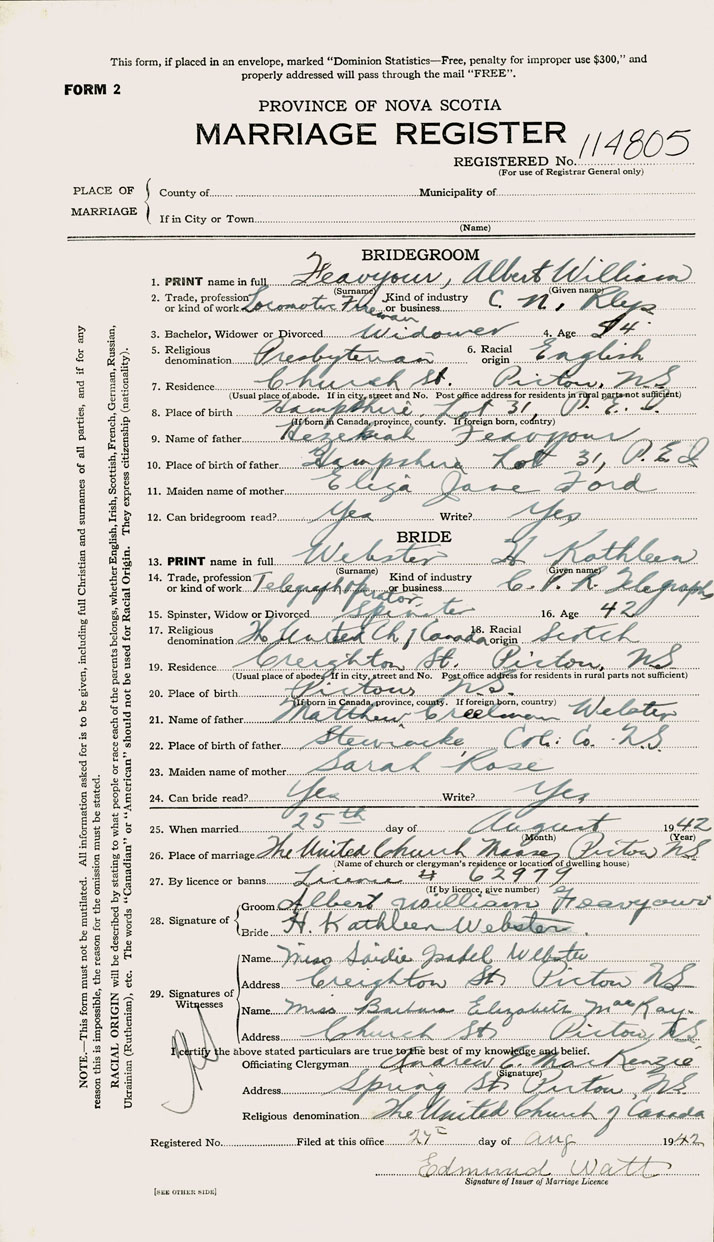 This form, if placed in an envelope, marked "Dominion Statistics—Free, penalty for improper use $300," and
properly addressed will pass through the mail "FREE".
FORM 2
PROVINCE OF NOVA SCOTIA
MARRIAGE REGISTER
REGISTERED No. 114805
(For use of Registrar General only)
PLACE OF MARRIAGE
County of Municipality of
If in City or Town
(Name)
BRIDEGROOM
1. PRINT name in full Heavyour, Albert William
(Surname) (Given name)
2. Trade, profession or kind of work Locomotive Fireman Kind of industry or business C. N. Rlys
3. Bachelor, Widower or Divorced Widower 4. Age 54
5. Religious denomination Presbyterian 6. Racial origin English
7. Residence Church St. Pictou, N.S.
(Usual place of abode. If in city, street and No. Post office address for residents in rural parts not sufficient)
8. Place of birth Hampshire, Lot 31, P. E. I.
(If born in Canada, province, county. If foreign born, country)
9. Name of father Hezekiah Feavyour
10. Place of birth of father Hampshire Lot 31, P.E.I
11. Maiden name of mother Eliza Jane Ford
12. Can bridegroom read? Yes Write? Yes
BRIDE
13. PRINT name in full Webster H Kathleen
(Surname) (Given name)
14. Trade, profession or kind of work Telegraph Operator Kind of industry or business C. P. R. Telegraphs
15. Spinster, Widow or Divorced Spinster 16. Age 42
17. Religious denomination The United Ch of Canada 18. Racial origin Scotch
19. Residence Creighton St. Pictou, NS
(Usual place of abode. If in city, street and No. Post office address for residents in rural parts not sufficient)
20. Place of birth Pictou N.S.
(If born in Canada, province, county. If foreign born, country)
21. Name of father Matthew Creelman Webster
22. Place of birth of father Stewiacke Col. Co. N.S.
23. Maiden name of mother Sarah Rose
24. Can bride read? Yes Write? Yes
25. When married 25th day of August 1942
(Month) (Year)
26. Place of marriage The United Church Manse, Pictou NS
(Name of church or clergyman's residence or location of dwelling house)
27. By licence or banns License # 62979
(If by licence, give number)
28. Signature of
Groom Albert William Heavyour
Bride H. Kathleen Webster.
29. Signatures of Witnesses
Name Miss Saidie Isabel Webster
Address Creighton St Pictou NS
Name Miss Barbara Elizabeth MacKay.
Address Church St Pictou, NS
I certify the above stated particulars are true to the best of my knowledge and belief.
Officiating Clergyman Andrew C. MacKenzie
(Signature)
Address Spring St. Pictou, NS.
Religious denomination The United Church of Canada
Registered No. Filed at this office 27th day of Aug 1942
Edmund Watt
Signature of Issuer of Marriage Licence
[SEE OTHER SIDE]
NOTE.—This form must not be mutilated. All information asked for is to be given, including full Christian and surnames of all parties, and if for any
reason this is impossible, the reason for the omission must be stated.
RACIAL ORIGIN will be described by stating to what people or race each of the parents belongs, whether English, Irish, Scottish, French, German, Russian,
Ukrainian (Ruthenian), etc. The words "Canadian" or "American" should not be used for Racial Origin. They express citizenship (nationality).